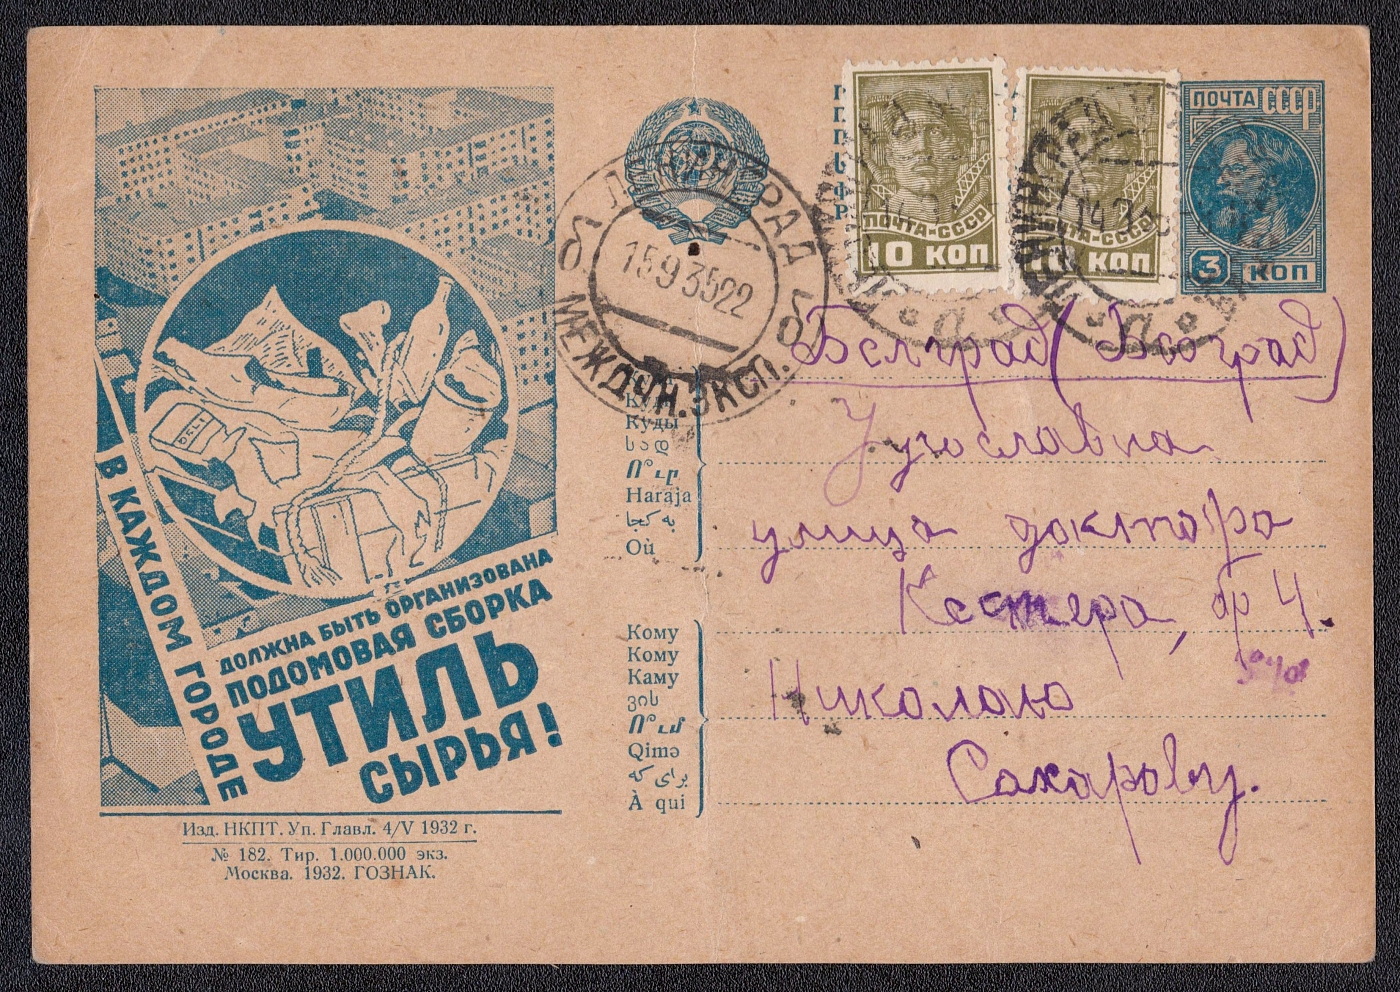 ПОЧТА СССР
3 КОП
ПОЧТА-СССР
10 КОП
ПОЧТА-СССР
КОП
ЛЕНИНГРАД
15 9 35 22
МЕЖДУН. ЭКСП.
DELI
В КАЖДОМ ГОРОДЕ
ДОЛЖНА БЫТЬ ОРГАНИЗОВАНА
ПОДОМОВАЯ СБОРКА
УТИЛЬ
СЫРЬЯ!
Изд. НКПТ. Уп. Главл. 4/V 1932 г.
№ 182. Тир. 1.000.000 экз.
Москва. 1932. ГОЗНАК.
Белград (Београд)
Куды
სად
Ո՞ւր
Haraja
به کجا
Où
Югославия
улица доктора
Кестера, бр 4.
Кому
Кому
Каму
ვის
Ո՞ւմ
Qimə
برای که
À qui
Николаю
Сахарову.